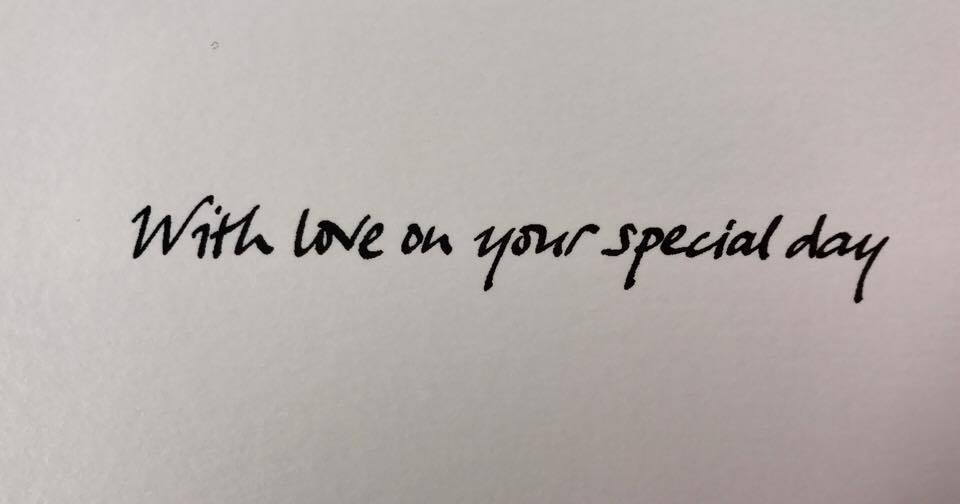 With love on your special day